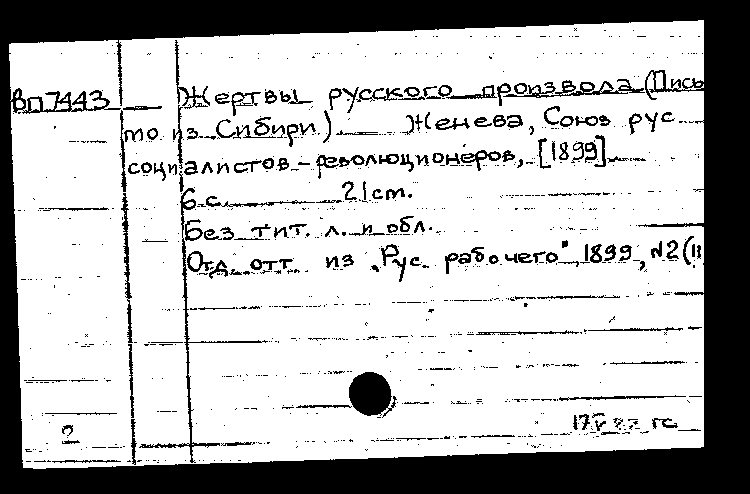 Вп7443 Жертвы русского произвола (Пись
мо из Сибири). Женева, Союз рус
социалистов-революционеров, [1899].
6 с. 21 cm.
Без тит. л. и обл.
Отд. отт из „Рус. рабочего", 1899, №2 (1
17 V гс